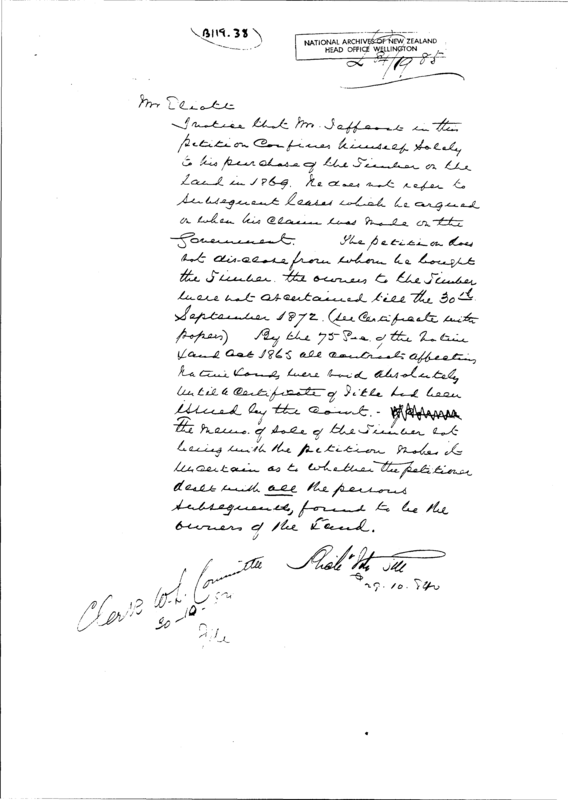 B119.38
NATIONAL ARCHIVES OF NEW ZEALAND
HEAD OFFICE WELLINGTON
85
Mr Elliott
I notice that Mr. in this
petition Confines himself Solely
to his purchase of the Timber on the
Land in 1869. He does not refer to
Subsequent leases which he argued
on when his Claim was made on the
Government. The petition does
not disclose from whom he bought
the Timber. the owners to the Timber
were not ascertained till the 30th
September 1872. (See Certificate with
papers) By the 75 Sec. of the Native
Land Act 1865 all contracts affecting
Native Lands were void absolutely
until a Certificate of Title had been
issued by the Court. -
The Memo. of Sale of the Timber not
being with the petition makes it
uncertain as to whether the petitioner
dealt with all the persons
subsequently found to be the
owners of the Land.
29.10.
Clerk W.L. Committee
30-10-